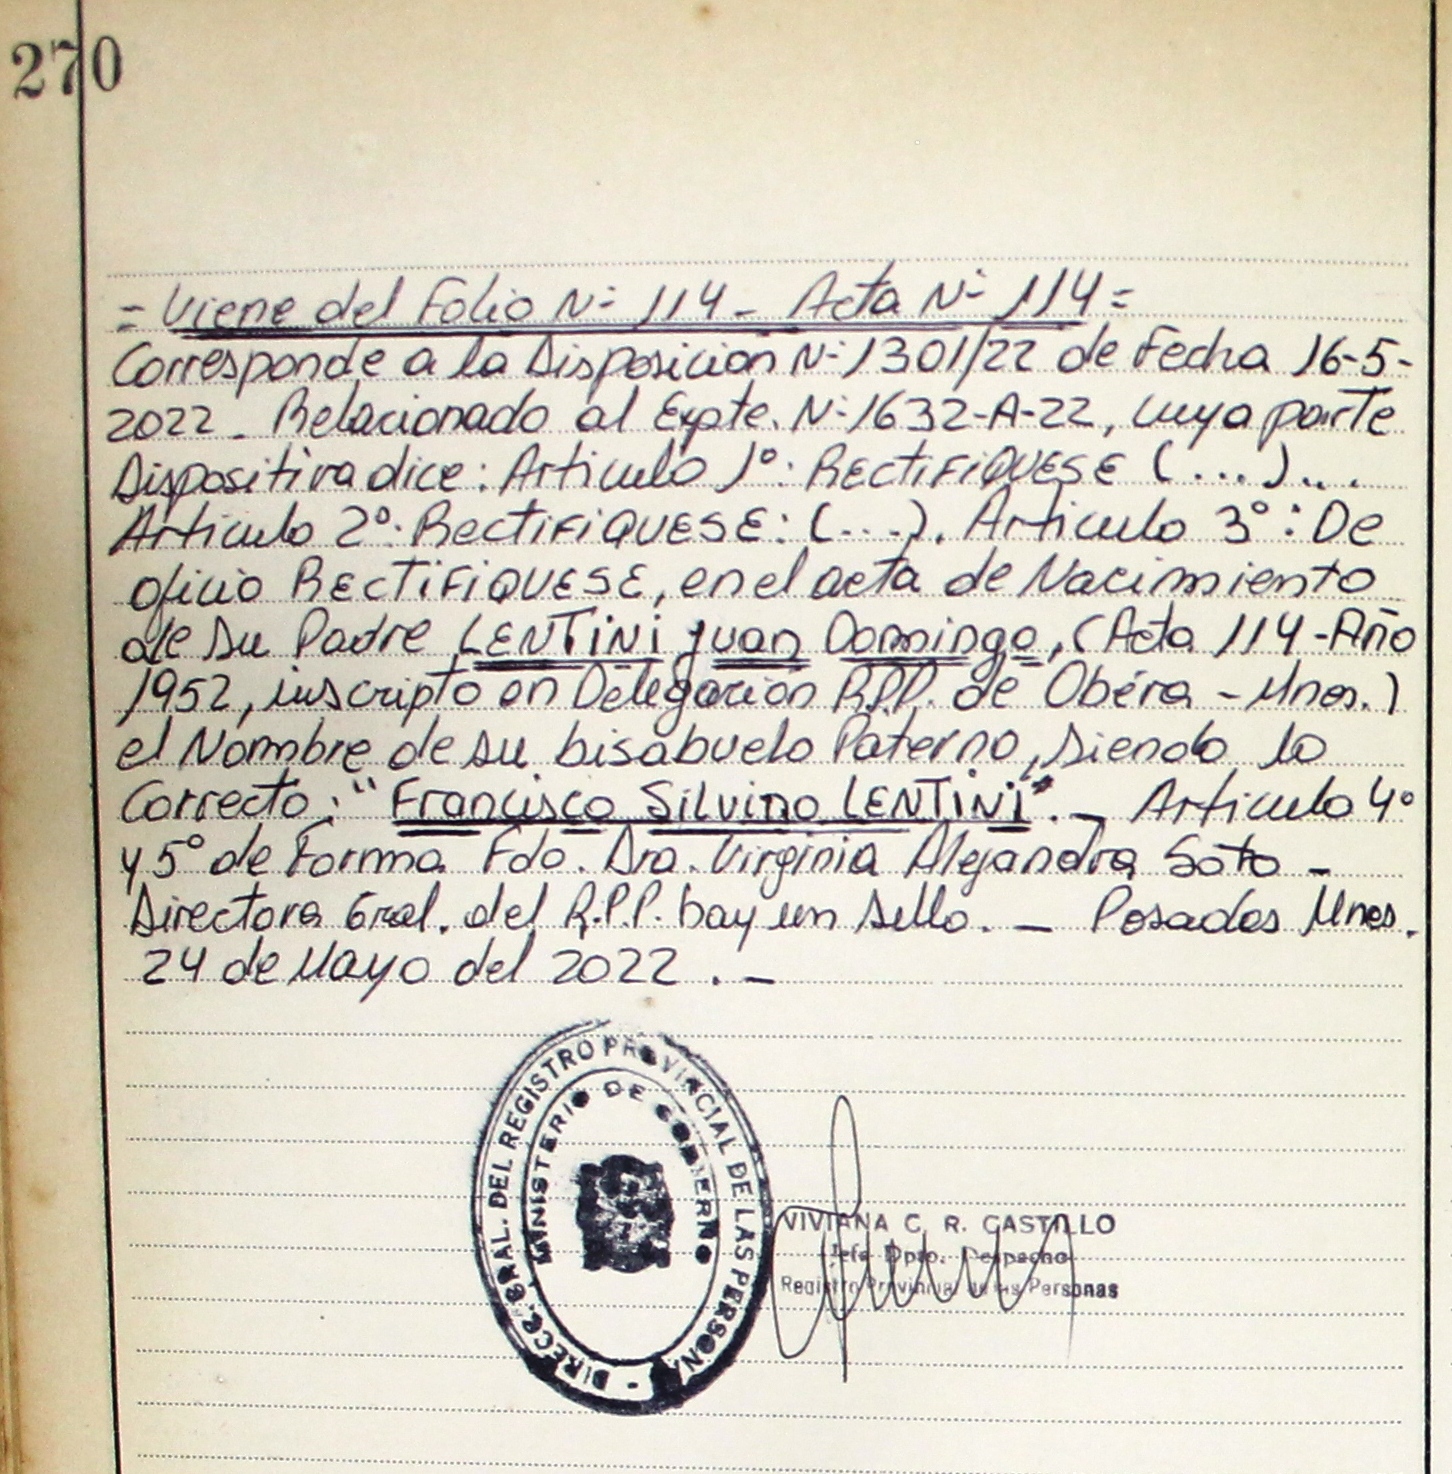 270
= Viene del Folio N° 114 - Acta N° 114 =
Corresponde a la Disposición N° 1301/22 de Fecha 16-5-
2022 - Relacionado al Expte. N° 1632-A-22, cuya parte
Dispositiva dice: Articulo 1°: RECTIFIQUESE (...)...
Articulo 2°: RECTIFIQUESE: (...). Articulo 3°: De
oficio RECTIFIQUESE, en el acta de Nacimiento
de su Padre LENTINI Juan Domingo, (Acta 114 - Año
1952, inscripto en Delegación R.P.P. de Oberá - Mnes.)
el Nombre de su bisabuelo Paterno, siendo lo
Correcto: "Francisco Silvino LENTINI". - Articulo 4°
y 5° de Forma Fdo. Dra. Virginia Alejandra Soto -
Directora Gral. del R.P.P. hay un sello. - Posadas Mnes.
24 de Mayo del 2022. -
DIRECC. GRAL. DEL REGISTRO PROVINCIAL DE LAS PERSON.
MINISTERIO DE GOBIERNO
VIVIANA C. R. CASTILLO
Jefa Dpto. Despacho
Registro Provincial de las Personas